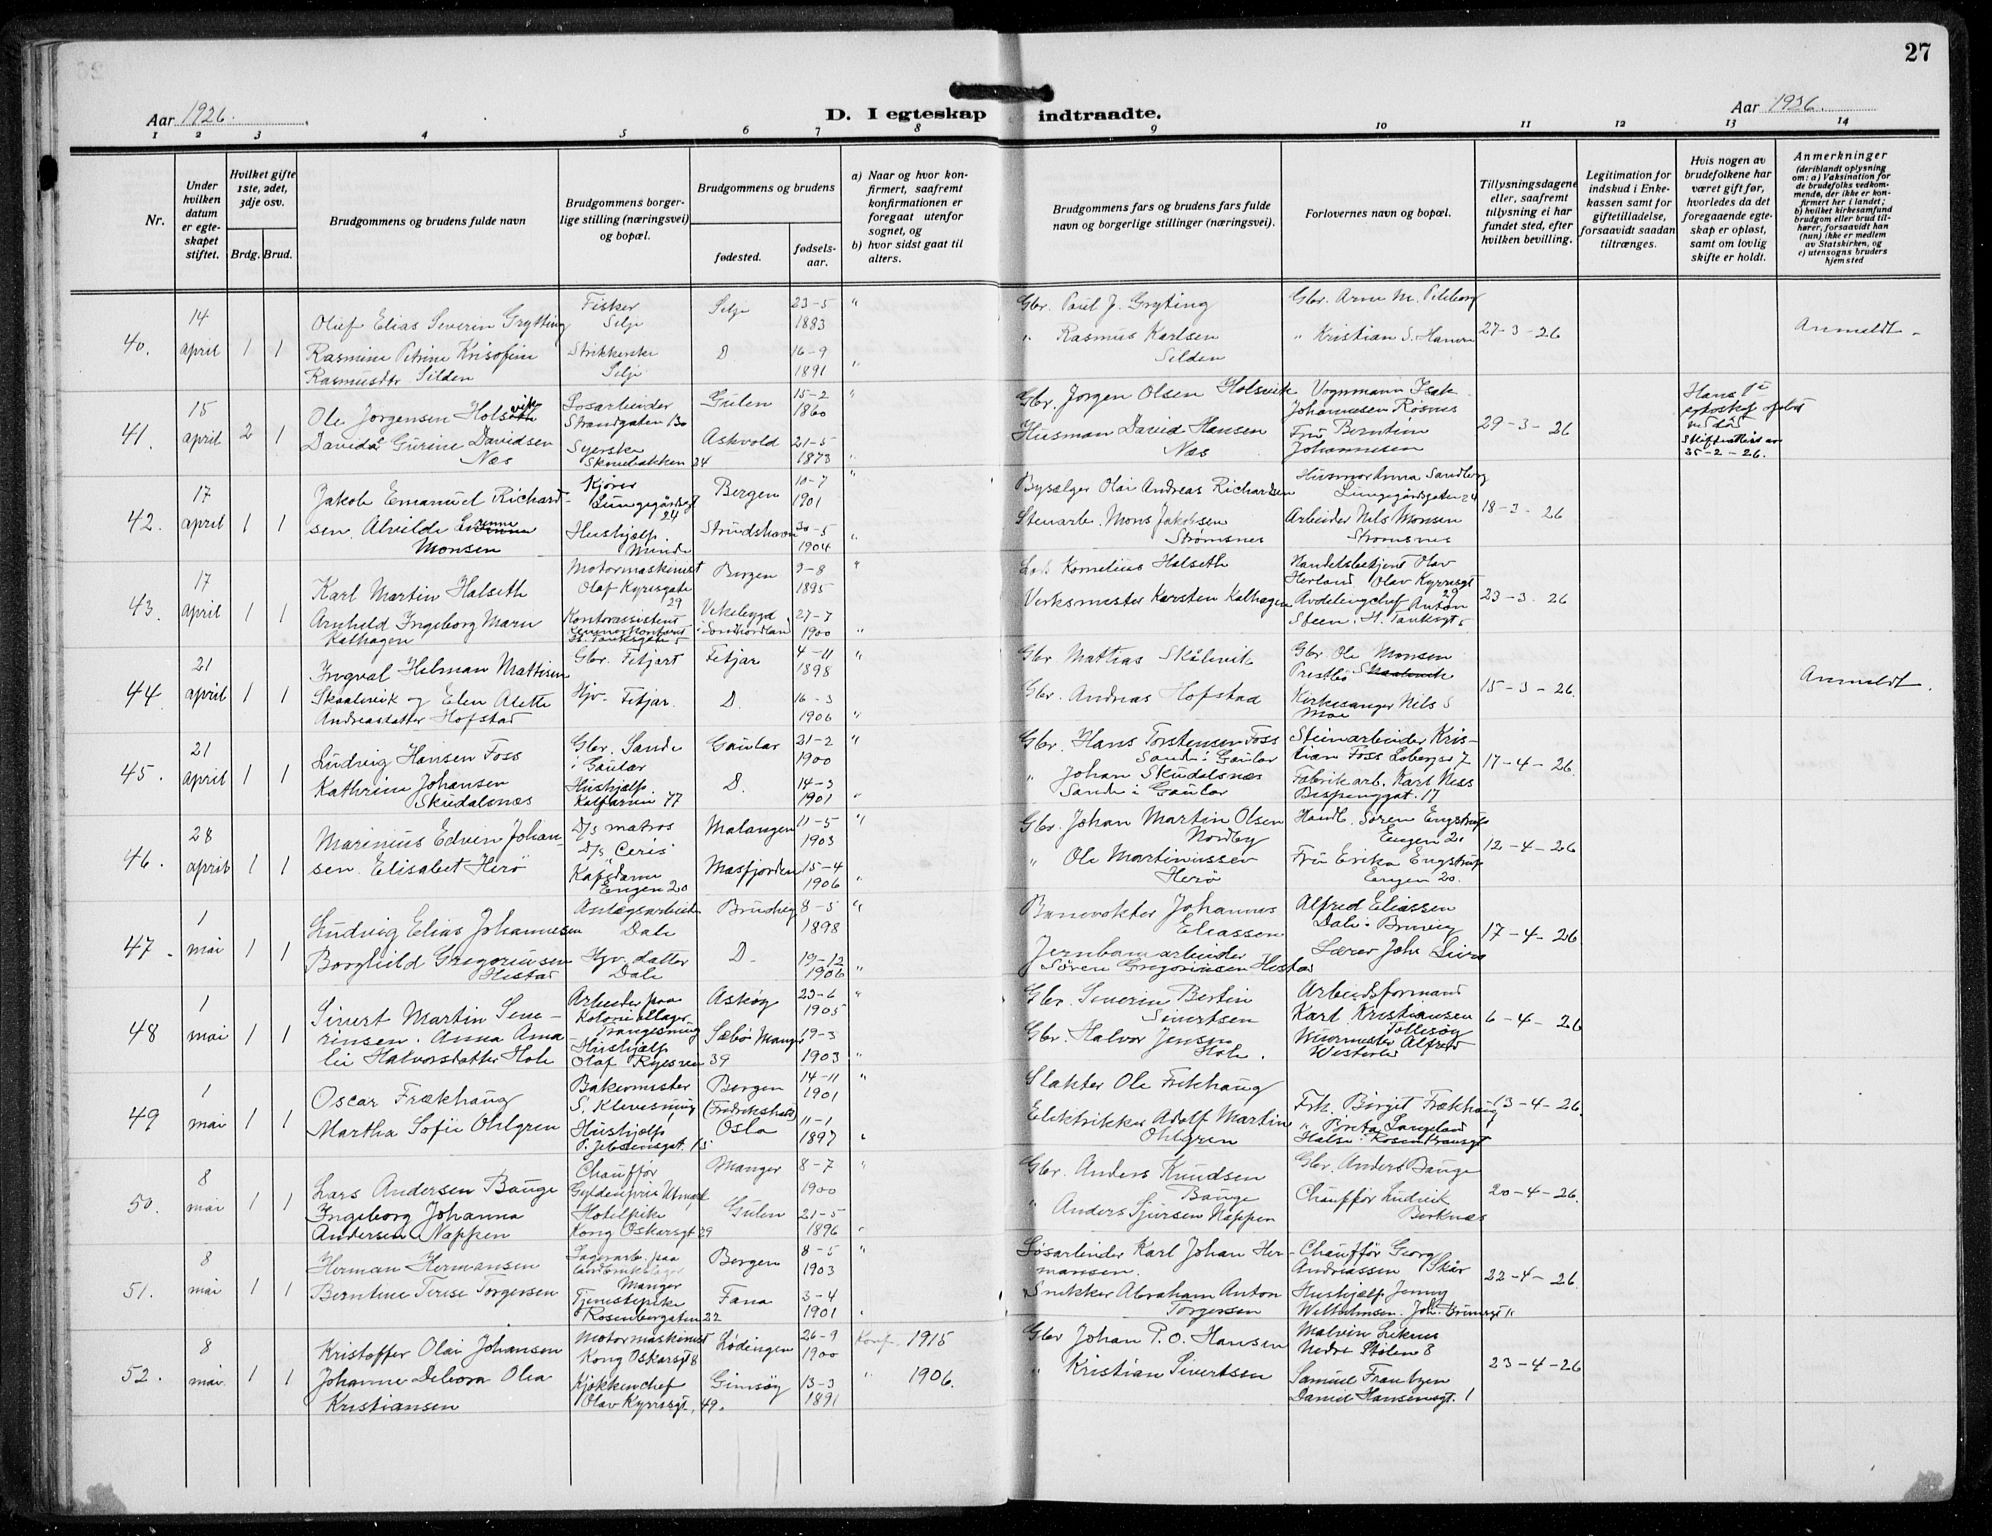 27
Aar 1926.
D. I egteskap indtraadte.
Aar 1926.
1 2 3 4 5 6 7 8 9 10 11 12 13 14
Nr.
Under hvilken datum er egteskapet stiftet.
Hvilket gifte 1ste, 2det, 3dje osv.
Brdg. Brud.
Brudgommens og brudens fulde navn
Brudgommens borgerlige stilling (næringsvei) og bopæl.
Brudgommens og brudens
fødested.
fødselsaar.
a) Naar og hvor konfirmert, saafremt konfirmationen er foregaat utenfor sognet, og
b) hvor sidst gaat til alters.
Brudgommens fars og brudens fars fulde navn og borgerlige stillinger (næringsvei).
Forlovernes navn og bopæl.
Tillysningsdagene eller, saafremt tillysning ei har fundet sted, efter hvilken bevilling.
Legitimation for indskud i Enkekassen samt for giftetilladelse, forsaavidt saadan tiltrænges.
Hvis nogen av brudefolkene har været gift før, hvorledes da det foregaaende egteskap er opløst, samt om lovlig skifte er holdt.
Anmerkninger (deriblandt oplysning om: a) Vaksination for de brudefolks vedkommende, der ikke er konfirmert her i landet; b) hvilket kirkesamfund brudgom eller brud tilhører, forsaavidt han (hun) ikke er medlem av Statskirken, og c) utensogns bruders hjemsted
40. 14 april 1 1
Oluf Elias Severin Grytting
Rasmine Petrine Krisofine
Rasmusdtr Silden
Fisker
Selje
Strikkerske
Selje
Selje 23-5 1883 "
D. 16-9 1891 "
Gbr. Paul J. Gryting
" Rasmus Karlsen
Silden
Gbr. Arne M.
" Kristian S. Hansen
27-3-26
Anmeldt
41. 15 april 2 1
Ole Jørgensen Holsvik
Davida Gurine Davidsen
Næs
Løsarbeider
Strandgaten 130
Syerske
Skivebakken 24
Gulen 15-2 1860
Askvold 21-5 1873 "
Gbr. Jørgen Olsen Holsvik
Husmann David Hansen
Næs
Vognmann Isak
Johannesen Rosnes
Fru Berntine
Johannesen
29-3-26
Hans 1ste
egteskap opløst
ved død
Skifteattest av
25-2-26.
42. 17 april 1 1
Jakob Emanuel Richard-
sen. Alvilde
Monsen
Kjører
Lungegårdsgt
24
Hushjælp.
Minde
Bergen 10-7 1901 "
Strudshavn 30-5 1904 "
Bysælger Olai Andreas Richardsen
Stenarb. Mons Jakobsen
Strømsnes
Husmor Anna Sandberg
Lungegårdsgaten 24
Arbeider Nils Monsen
Strømsnes
18-3-26
43. 17 april 1 1
Karl Martin Halseth
Arnhild Ingeborg Marie
Kalhagen
Motormaskinist
Olaf Kyrresgate
29
Kontorassistent
Bergen 9-8 1895 "
Vikebygd i Søndhordland 27-7 1900 "
Kornelius Halseth
Verksmester Karsten Kalhagen
Handelsbetjent Olav
Herland Olav Kyrresgt
29
Avdelingchef Anton
Steen. H. Tanksgt 5
23-3-26
44. 21 april 1 1
Ingval Helman Mattisen
Skaalevik og Elen Alette
Andreasdatter Hofstad
Gbr. Fitjar
Hjv. Fitjar.
Fitjar 4-11 1898 "
D. 16-3 1906 "
Gbr Mathias Skålevik
Gbr. Andreas Hofstad
Gbr. Ole Monsen
Prestbø Skaalevik
Kirkesanger Nils S
Moe
15-3-26.
Anmeldt.
45. 21 april 1 1
Ludvig Hansen Foss
Kathrine Johansen
Skudalsnæs
Gbr. Sande
i Gaular
Hushjælp
Kalfarvei 77
Gaular 21-2 1900 "
D. 14-3 1901 "
Gbr. Hans Torstensen Foss
Sande i Gaular
" Johan Skudalsnæs
Sande i Gaular
Steinarbeider Kris-
tian Foss Lobergsv 7
Fabrikarb. Karl Ness
Bispenggat. 17
17-4-26.
46. 28 april 1 1
Marinius Edvin Johan-
sen. Elisabet Herø
D/s matros
D/s Ceris
Kafédame
Engen 20
Malangen 11-5 1903 "
Masfjorden 15-4 1906 "
Gbr. Johan Martin Olsen
Nordby
" Ole Martinussen
Herø
Handl. Søren Engstrup
Engen 20
Fru Erika Engstrup
Engen 20.
12-4-26
47. 1 mai 1 1
Ludvig Elias Johannesen
Borghild Gregoriusen
Hestad
Anlægsarbeider
Dale
Hjv. datter
Dale
Bruvig 8-5 1898 "
D. 19-12 1906 "
Banevokter Johannes
Eliassen
Jernbanearbeider
Søren Gregoriusen Hestad
Alfred Eliassen
Dale i Bruvig
Lærer Johs
17-4-26
48 1 mai 1 1
Sivert Martin Seve-
rinsen. Anna Ama-
lie Halvorsdatter Hole
Arbeider paa
Koloniallager
Hushjælp
Olaf Ryesvei 39
Askøy 23-6 1905 "
Sæbø Manger 19-3 1903 "
Gbr. Severin Bertin
Sivertsen
Gbr. Halvor Jensen
Hole.
Arbeidsformand
Karl Kristiansen
Murmester Alfred
6-4-26
49 1 mai 1 1
Oscar Frækhaug
Martha Sofie Ohlgren
Bakermester
S. Klevesmug
Hushjælp
P. Jebsensgat. 15
Bergen 14-11 1901 "
(Fredrikshald) Oslo 11-1 1897 "
Slakter Ole Frekhaug
Elektrikker Adolf Martin
Ohlgren
Frk. Birgit Frækhaug
" Brita Langeland
Rosenkransgt
13-4-26.
50. 8 mai 1 1
Lars Andersen Bauge
Ingeborg Johanna
Andersen Nappen
Chauffør
Hotelpike
Kong Oskarsgt 29
Manger 8-7 1900 "
Gulen 21-5 1896 "
Gbr. Anders Knudsen
Bauge
" Anders Sjursen Nappen
Gbr. Anders Bauge
Chauffør Ludvik
Berknæs
20-4-26.
51. 8 mai 1 1
Herman Hermansen
Berntine Terese Torgersen
Lagerarb. paa
Manger
Tjenestepike
Rosenbergaten 22
Bergen 8-5 1903 "
Fana 3-4 1901 "
Løsarbeider Karl Johan Her-
mansen.
Snekker Abraham Anton
Torgersen
Chauffør Georg
Andreassen Skår
Hushjælp Jenny
Wilhelmsen. Joh. Brunsgt 11
22-4-26
52. 8 mai 1 1
Kristoffer Olai Johansen
Johanne Debora Olea
Kristiansen
Motormaskinist
Kong Oskarsgt 8
Kjøkkenchef
Olav Kyrresgt. 49.
Lødingen 26-9 1900 Konf. 1915
Gimsøy 13-3 1891 " 1906.
Gbr Johan P. O. Hansen
" Kristian Sivertsen
Malvin
Nedre Stølen 8
Samuel Frantzen
Daniel Hansensgt. 1
23-4-26